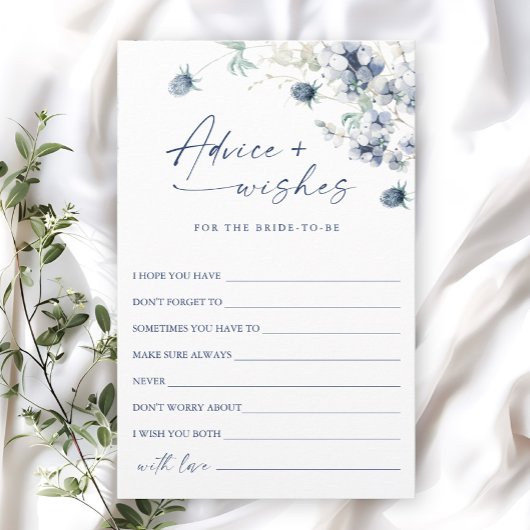 Advice +
wishes
FOR THE BRIDE-TO-BE
I HOPE YOU HAVE
DON'T FORGET TO
SOMETIMES YOU HAVE TO
MAKE SURE ALWAYS
NEVER
DON'T WORRY ABOUT
I WISH YOU BOTH
with love